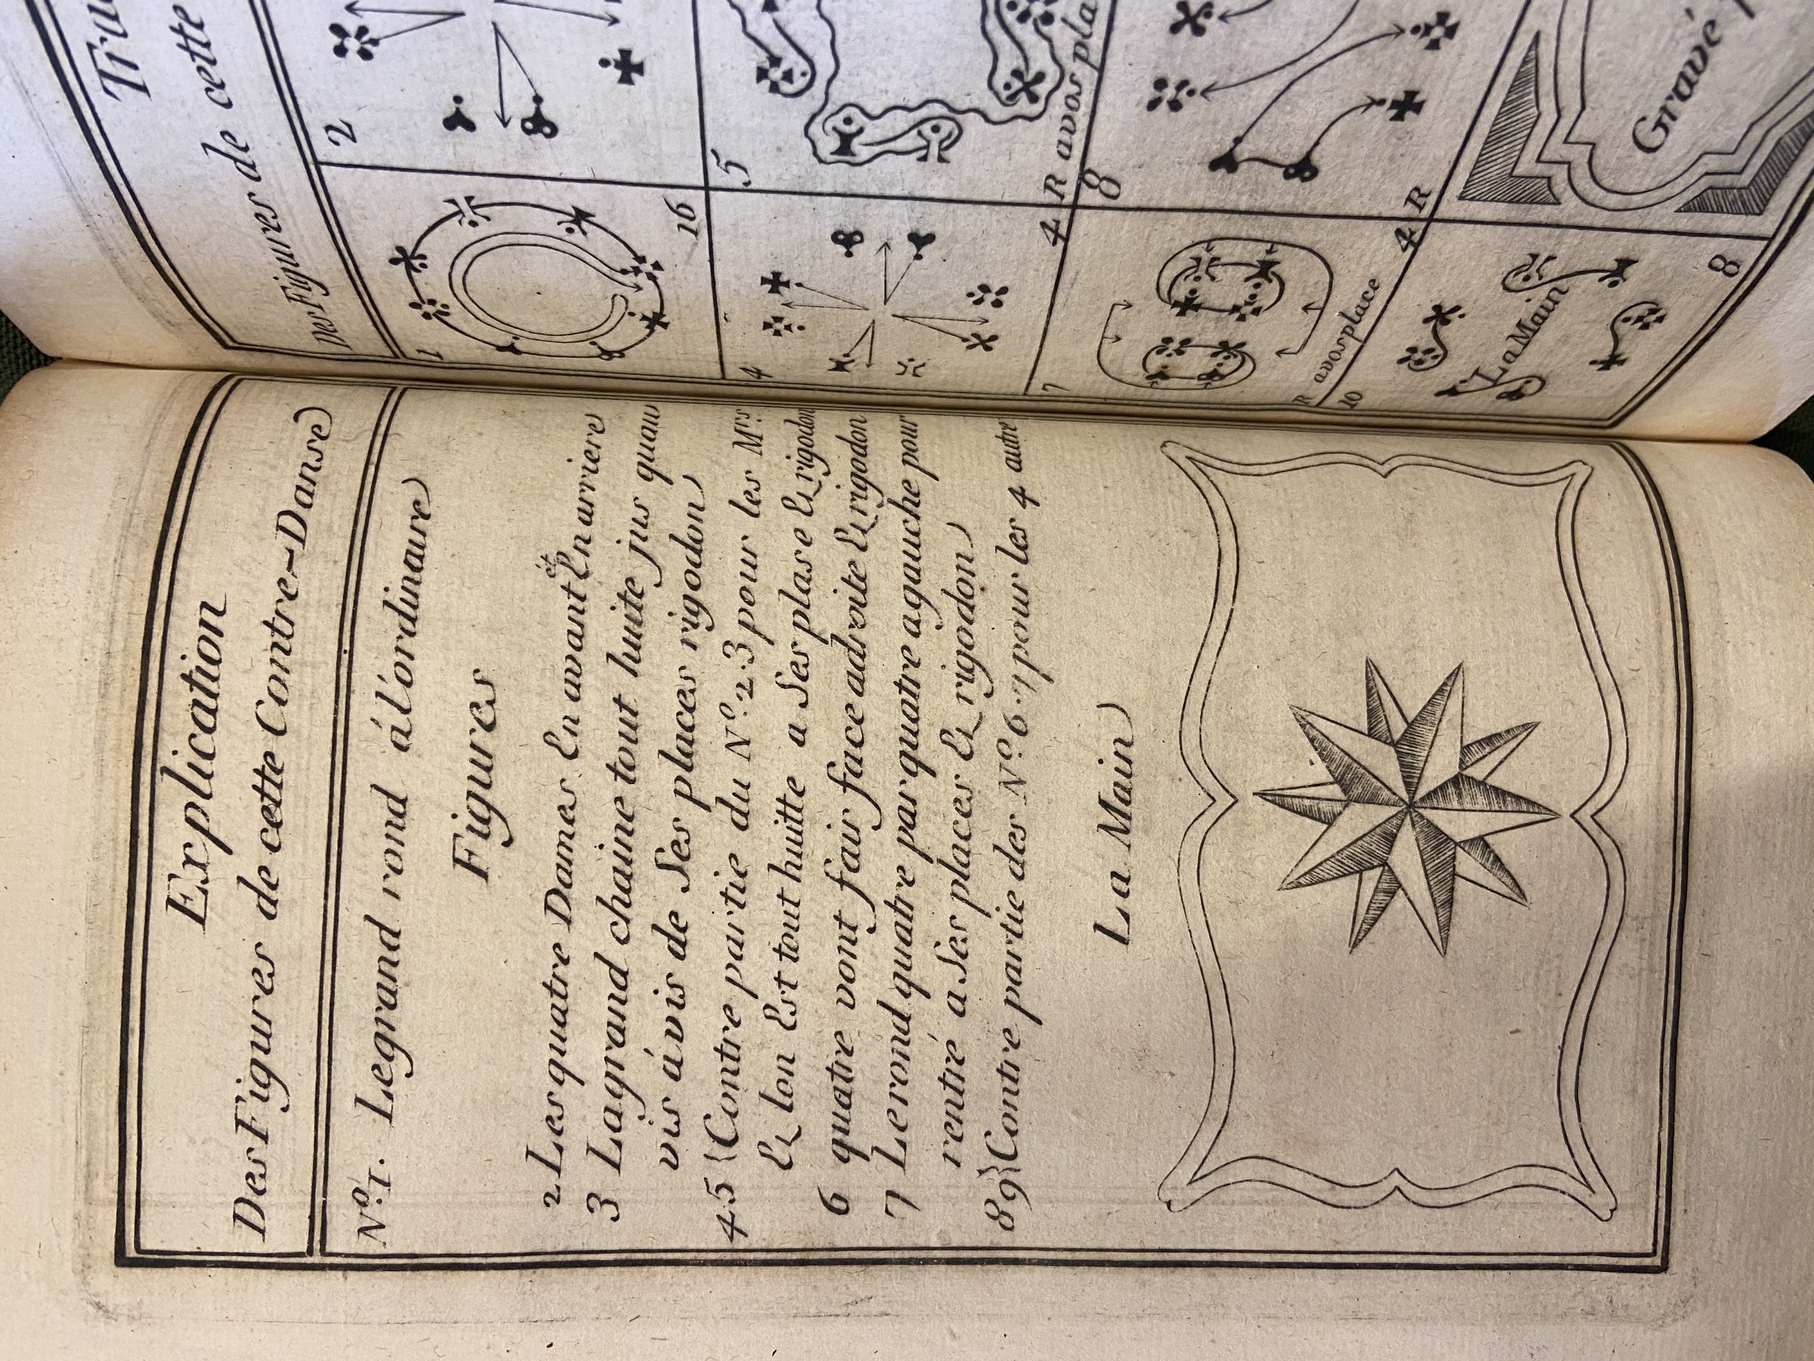 Explication
Des Figures de cette Contre-Danse
Nº. 1. Le grand rond á l'ordinaire
Figures
2 Les quatre Dames En avant et En arriere
3 La grand chaine tout huite jus quau
vis ávis de Ses places rigodon
4.5 { Contre partie du Nº. 2.3 pour les Mrs
Et lon Est tout huitte a Ses plase Et rigodon
6 quatre vont fair face adroite Et rigodon
7 Le rond quatre par quatre agauche pour
rentré a Ses places Et rigodon
8 9 } Contre partie des Nº. 6.7 pour les 4 autre
La Main
Des Figures de cette
1
16
2
4
4 R
5
avos pla
7
R
avos place
4 R
8
4 R
10
La Main
8
Gravé